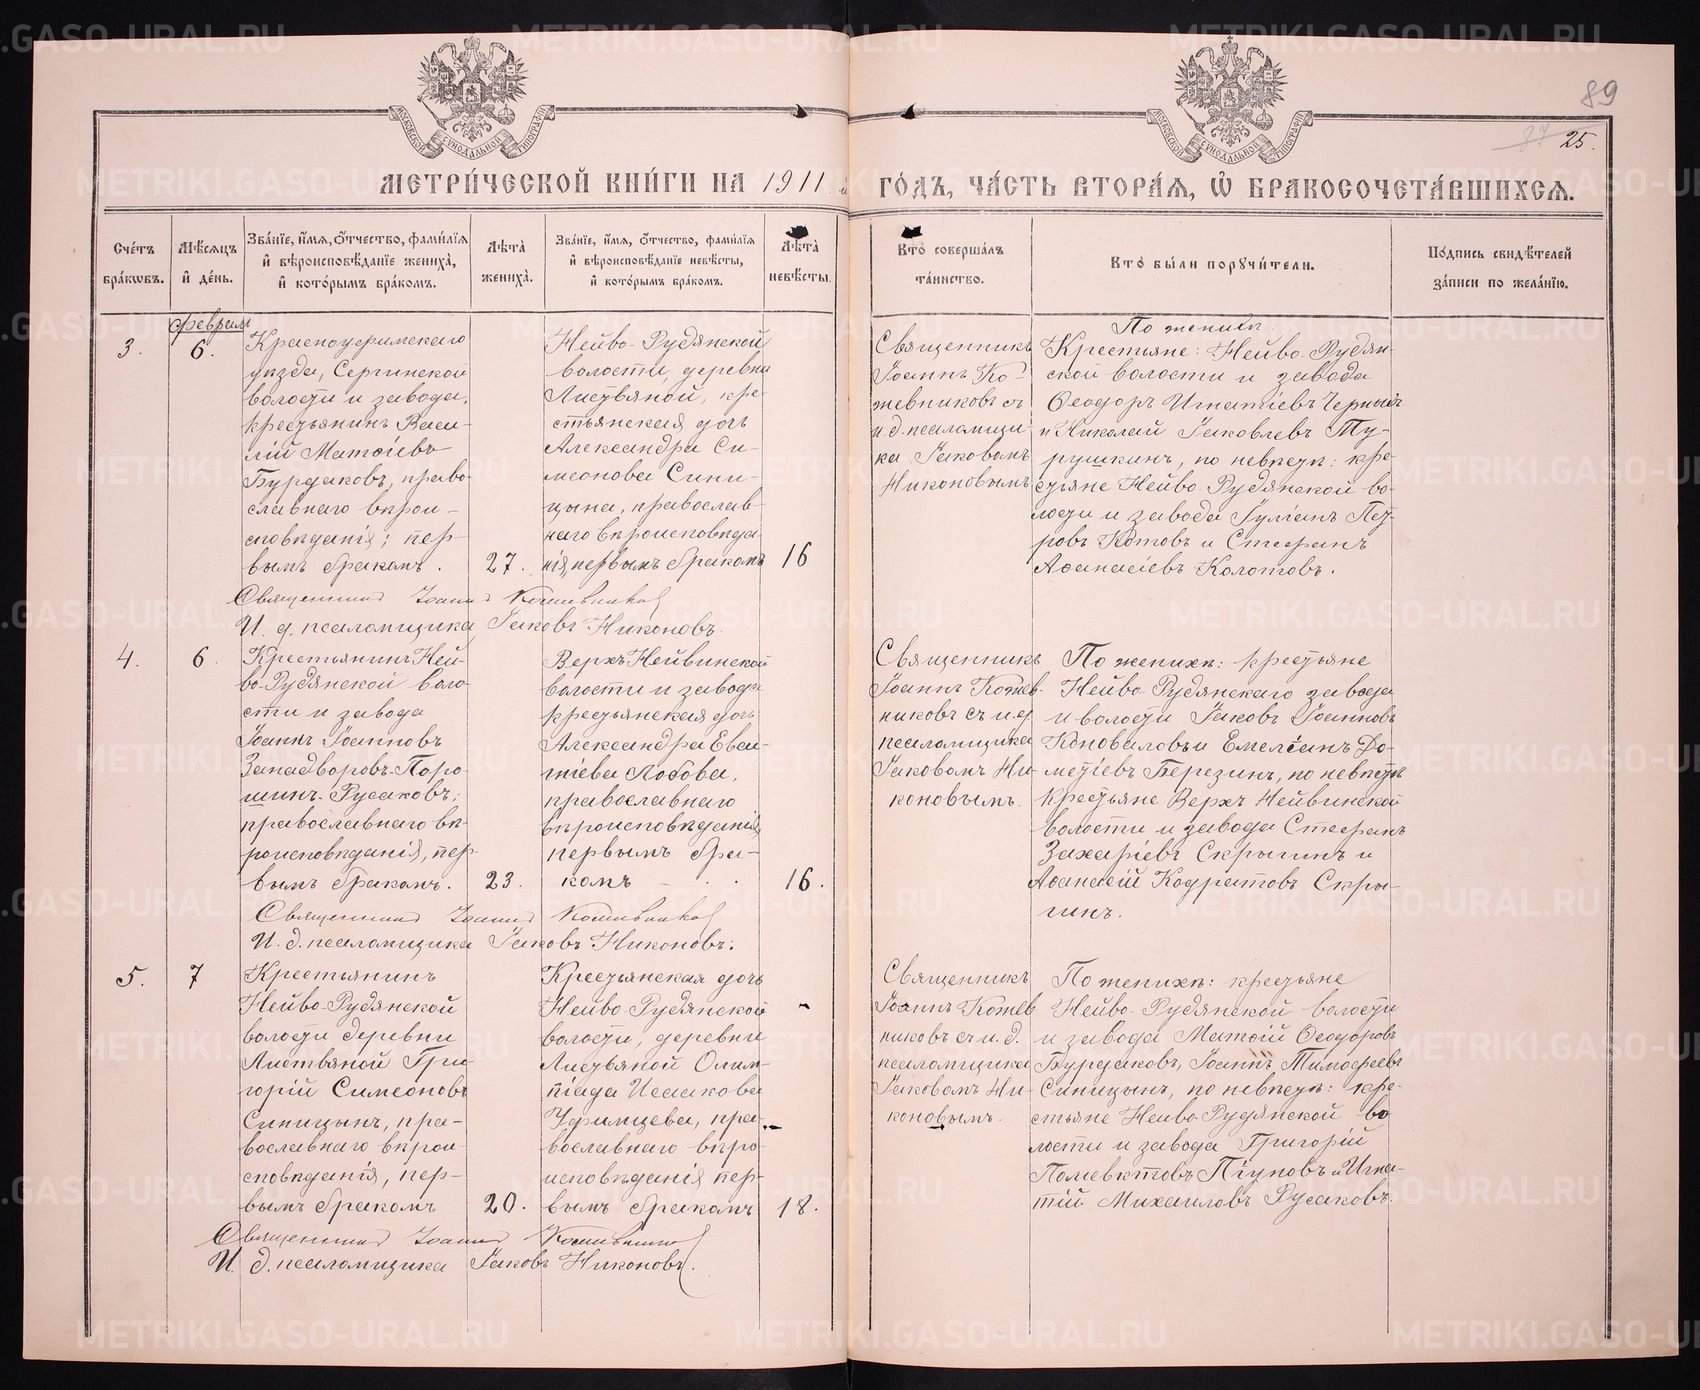 89
25.
МЕТРИЧЕСКОЙ КНИГИ НА 1911
ГОДЪ, ЧАСТЬ ВТОРАЯ, Ѡ БРАКОСОЧЕТАВШИХСЯ.
Счетъ браковъ.
Мѣсяцъ и день.
Званіе, имя, отчество, фамилія и вѣроисповѣданіе жениха, и которымъ бракомъ.
Лѣта жениха.
Званіе, имя, отчество, фамилія и вѣроисповѣданіе невѣсты, и которымъ бракомъ.
Лѣта невѣсты.
Кто совершалъ таинство.
Кто были поручители.
Подпись свидѣтелей записи по желанію.
февраль
3.
6.
Красноуфимскаго
уѣзда, Сергинской
волости и завода,
крестьянинъ Васи-
лій Матѳіевъ
Бурдаковъ, право-
славнаго вѣрои-
сповѣданія; пер-
вымъ бракомъ.
27.
Нейво-Рудянской
волости, деревни
Листвяной, кре-
стьянская дочь
Александра Си-
меонова Сини-
цына, православ-
наго вѣроисповѣда-
нія, первымъ бракомъ
16
Священникъ
Іоаннъ Ко-
жевниковъ съ
и.д. псаломщи
ка Іаковомъ
Никоновымъ
По женихѣ:
Крестьяне: Нейво-Рудян-
ской волости и завода
Ѳеодоръ Игнатіевъ Черныхъ
и Николай Іаковлевъ Ту-
рушкинъ, по невѣстѣ: кре-
стьяне Нейво-Рудянской во-
лости и завода Іуліанъ Пет-
ровъ Котовъ и Стефанъ
Аѳанасіевъ Колотовъ.
Священникъ Іоаннъ Кожевниковъ
И. д. псаломщика Іаковъ Никоновъ.
4.
6.
Крестьянинъ Ней-
во-Рудянской воло-
сти и завода
Іоаннъ Іоанновъ
Западворовъ-Поро-
шинъ-Русаковъ;
православнаго вѣ-
роисповѣданія, пер-
вымъ бракомъ.
23.
Верхъ-Нейвинской
волости и завода
крестьянская дочь
Александра Евси-
гніева Лобова,
православнаго
вѣроисповѣданія,
первымъ бра-
комъ
16.
Священникъ
Іоаннъ Кожев-
никовъ съ и.д.
псаломщика
Іаковомъ Ни-
коновымъ.
По женихѣ: крестьяне
Нейво-Рудянскаго завода
и волости Іаковъ Іоанновъ
Коноваловъ и Емеліанъ До-
метіевъ Березинъ, по невѣстѣ
крестьяне Верхъ-Нейвинской
волости и завода Стефанъ
Захаріевъ Скрыгинъ и
Аѳанасій Кодратовъ Скры-
гинъ.
Священникъ Іоаннъ Кожевниковъ
И. д. псаломщика Іаковъ Никоновъ.
5.
7
Крестьянинъ
Нейво-Рудянской
волости деревни
Листвяной Гри
горій Симеоновъ
Синицынъ, пра-
вославнаго вѣрои
сповѣданія, пер-
вымъ бракомъ
20.
Крестьянская дочь
Нейво-Рудянской
волости, деревни
Листвяной Олим-
піада Исаакова
Уфимцева, пра-
вославнаго вѣро-
исповѣданія пер-
вымъ бракомъ
18.
Священникъ
Іоаннъ Кожев
никовъ съ и.д.
псаломщика
Іаковомъ Ни-
коновымъ.
По женихѣ: крестьяне
Нейво-Рудянской волости
и завода Матѳій Ѳеодоровъ
Бурдаковъ, Іоаннъ Тимофеевъ
Синицынъ, по невѣстѣ: кре-
стьяне Нейво-Рудянской во
лости и завода Григорій
Поліевктовъ Пѣуновъ и Игна-
тій Михаиловъ Русаковъ.
Священникъ Іоаннъ Кожевниковъ
И. д. псаломщика Іаковъ Никоновъ.
METRIKI.GASO-URAL.RU